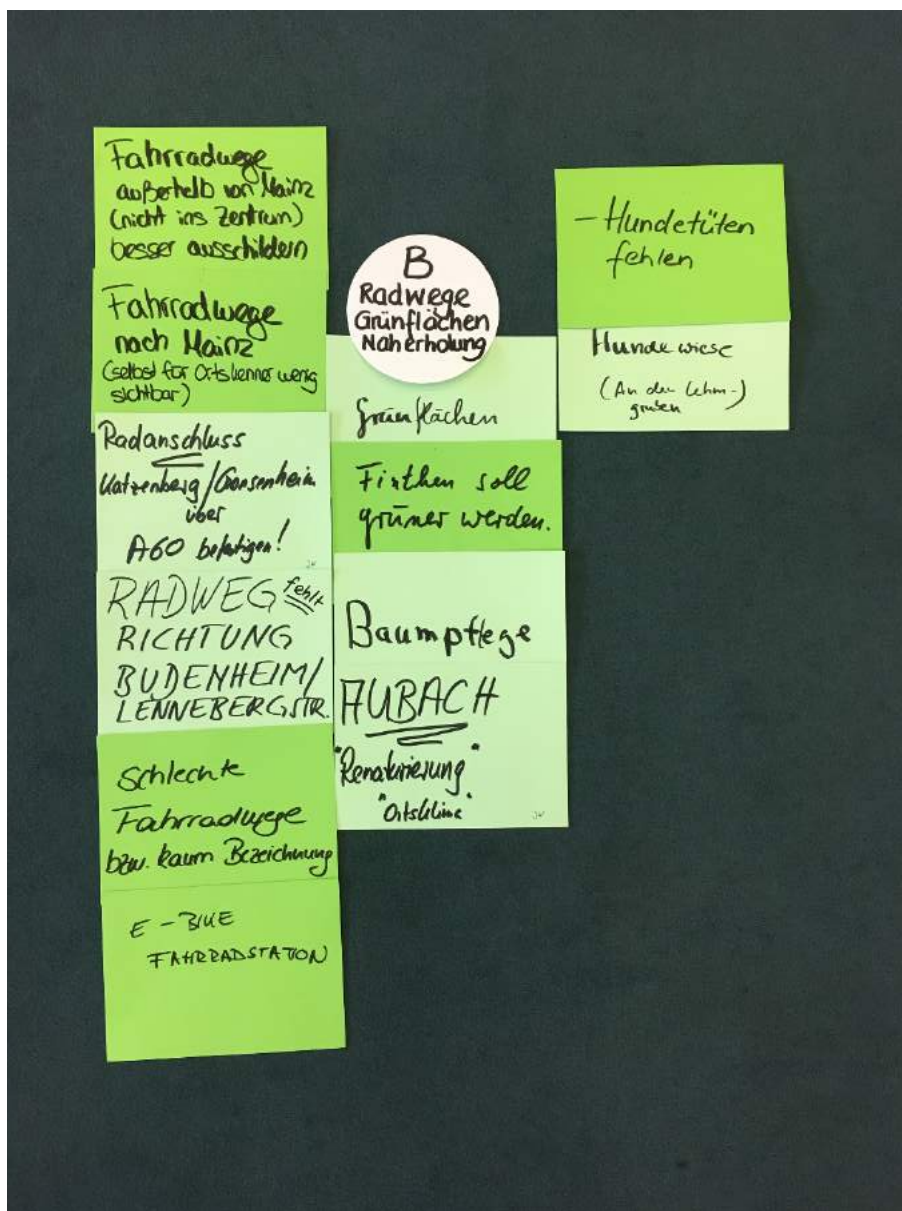 Fahrradwege
außerhalb von Mainz
(nicht ins Zentrum)
besser ausschildern
Fahrradwege
nach Mainz
(selbst für Ortskenner wenig
sichtbar)
Radanschluss
Katzenberg/Gonsenheim
über
A60 befestigen!
RADWEG fehlt
RICHTUNG
BUDENHEIM/
LENNEBERGSTR.
Schlechte
Fahrradwege
bzw. kaum Bezeichnung
E-BIKE
FAHRRADSTATION
B
Radwege
Grünflächen
Naherholung
Grünflächen
Finthen soll
grüner werden.
Baumpflege
AUBACH
"Renaturierung"
"Ortsklima"
- Hundetüten
fehlen
Hundewiese
(An den Lehm-)
gruben